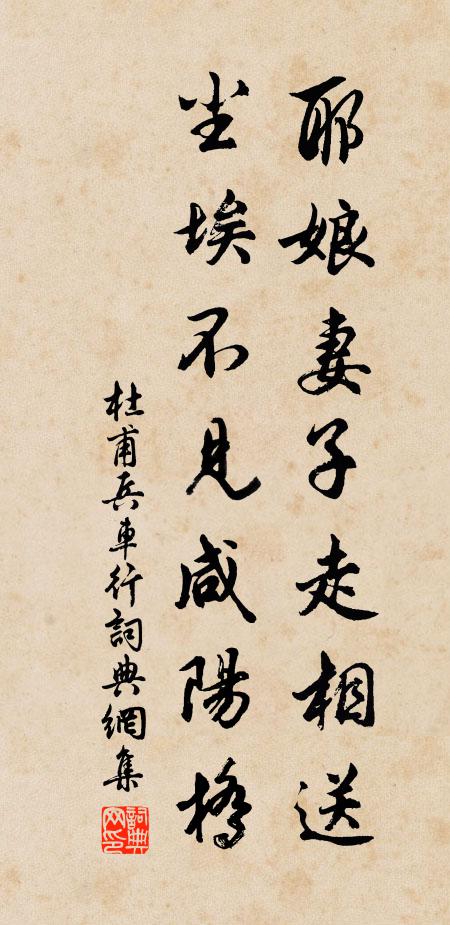 耶娘妻子走相送
尘埃不見咸陽橋
杜甫兵車行詞典網集
詞典网印